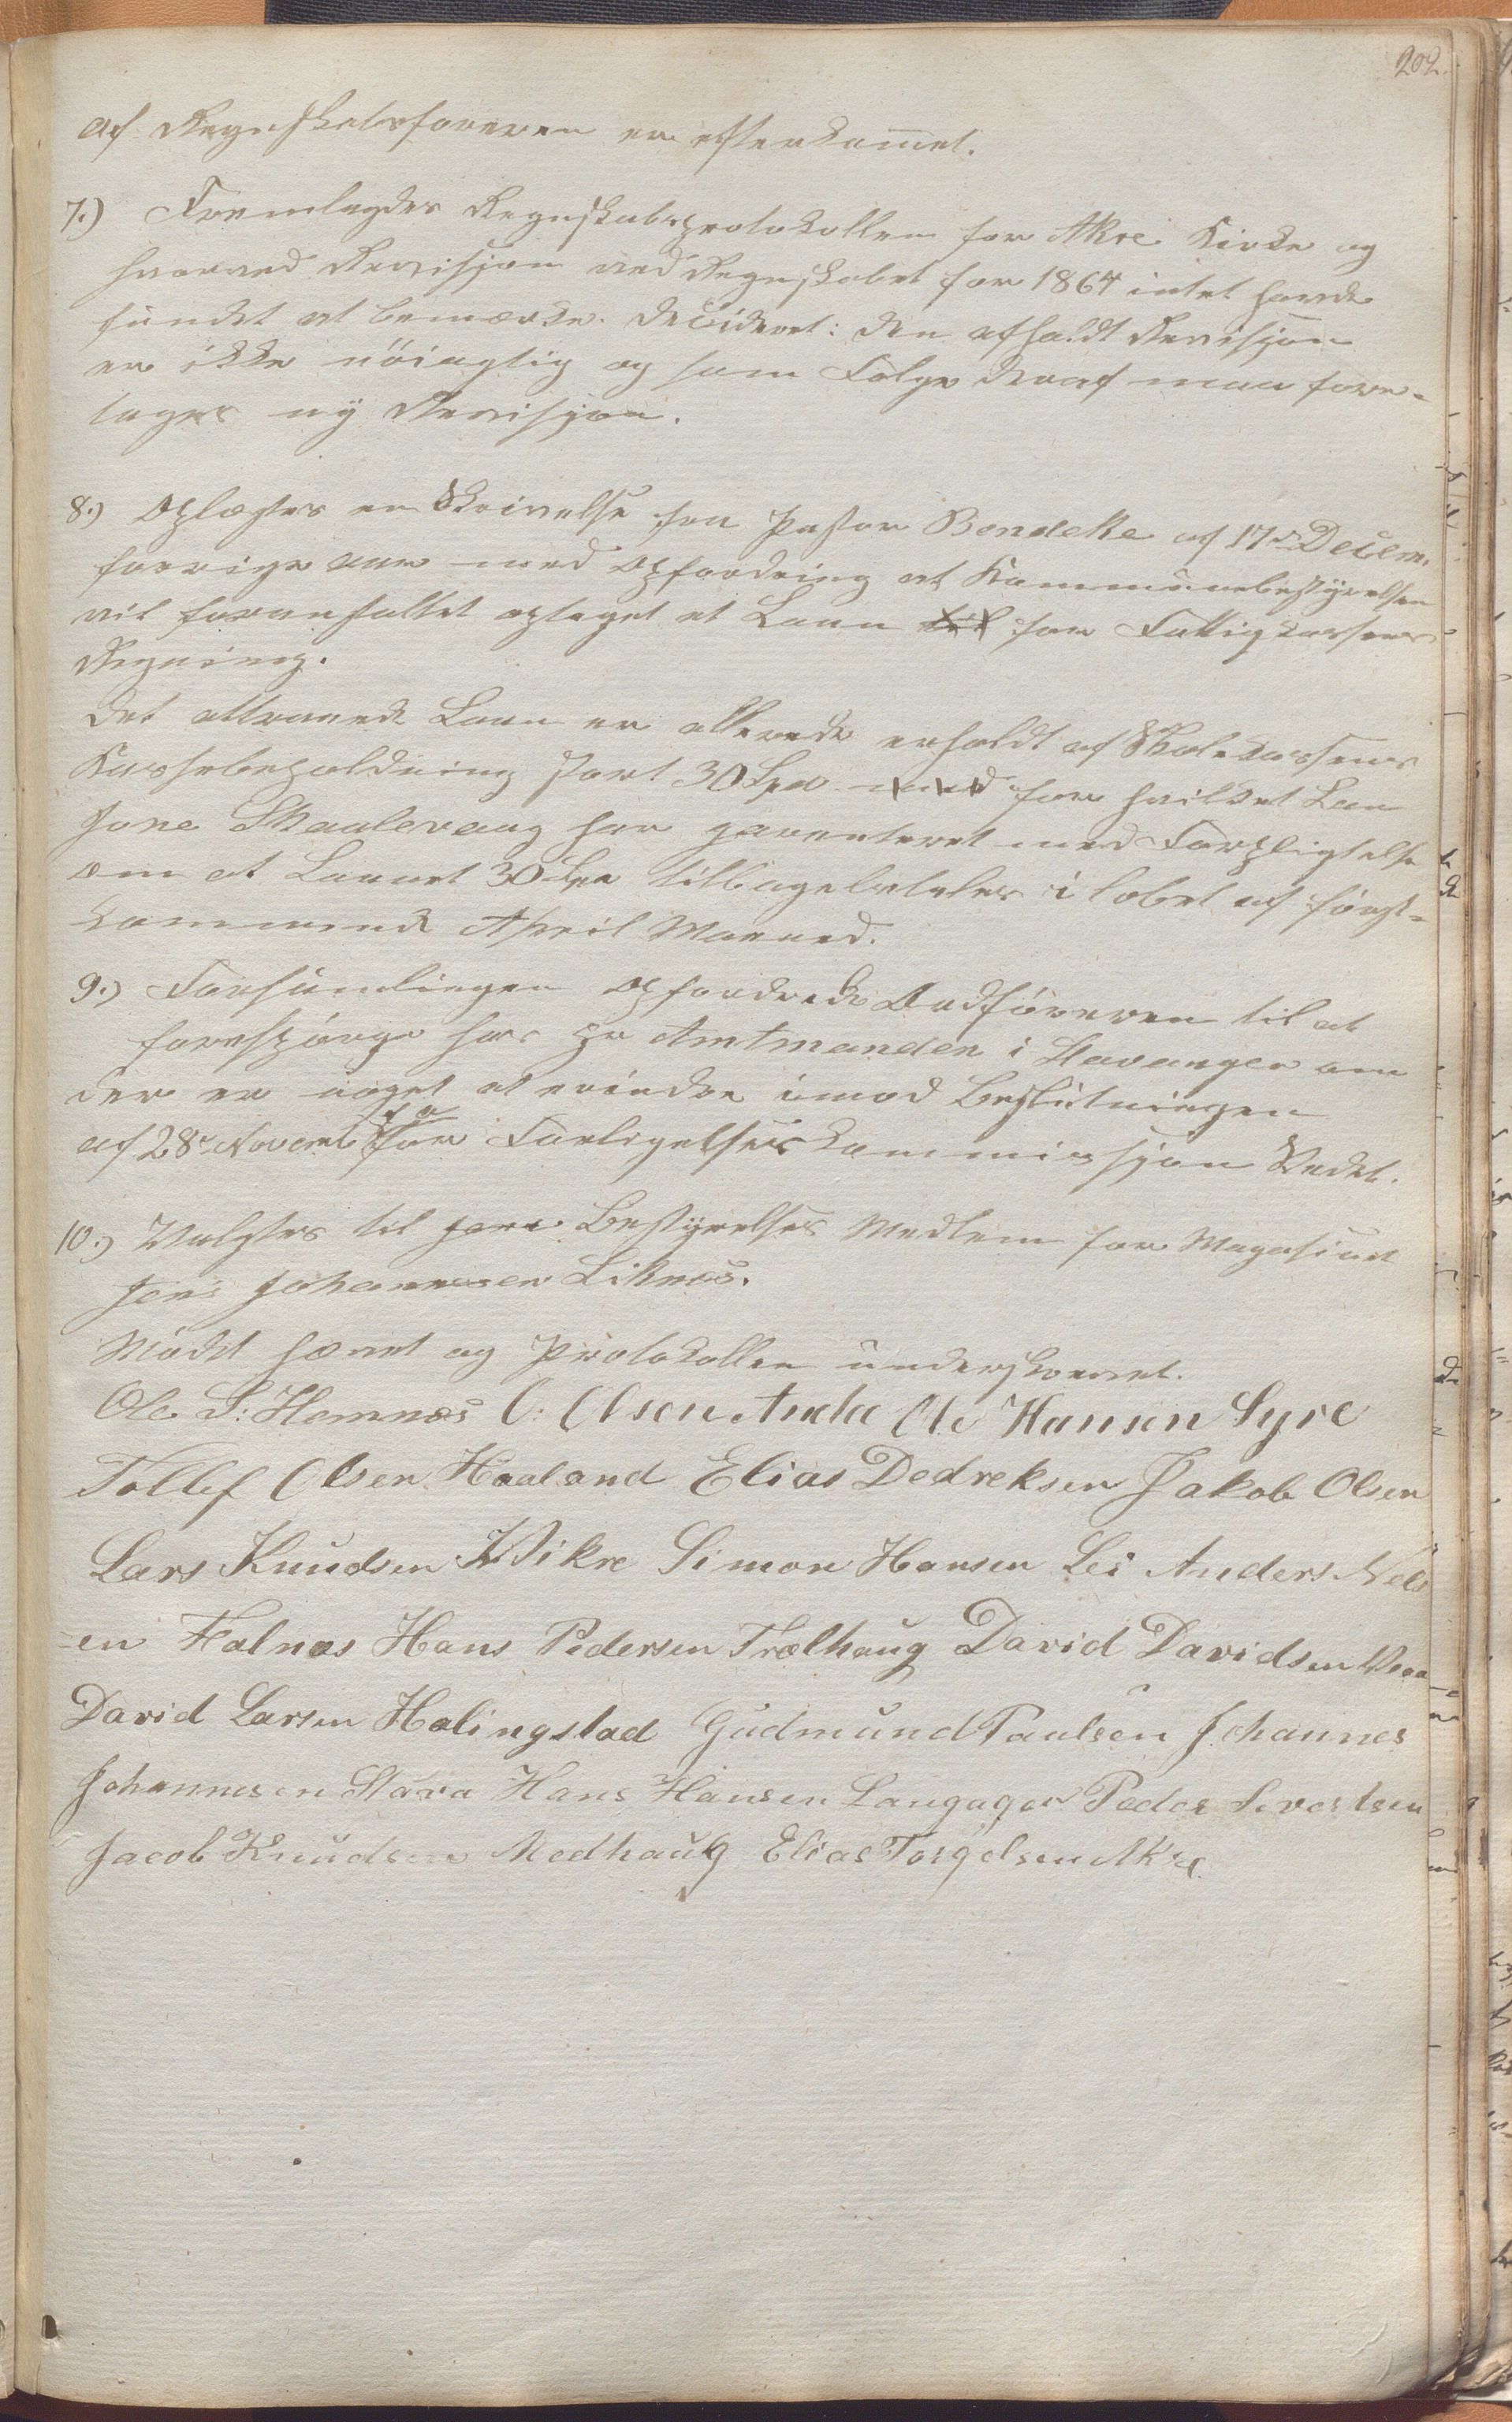 202.
af Regnskabsføreren er efterkommet.
7.) Fremlagdes Regnskabsprotokollen for Akre Kirke og
hvorved Revisjon ved Regnskabet for 1864 intet havde
fundet at bemærke. Decideret: den afholdt Revisjon
er ikke nöiagtig og som Følge deraf maa fore-
tages ny Revisjon.
8.) Oplæstes en Skrivelse fra Pastor Bendeke af 17de Decem.
forrige aar med Opfordring at Kommunebestyrelsen
vil foranstaltet optaget et Laan til for Fattigkassens
Regning.
Det attraaede Laan er allerede erholdt af Skolekassens
Kassebeholdning stort 30 Spd med for hvilket Laan
Jone Skaalevaag har garanteret med Forpligtelse
om at Laanet 30 Spd tilbagebetales i lobet af først-
kommende April Maaned.
9.) Forsamlingen opfordrede Ordføreren til at
forespörge hos Hr Amtmanden i Stavanger om
der er noget at erindre imod Beslutningen
af 28de Novemb. f a for Forligelseskommissjon Stedet.
10.) Valgtes til Bestyrelses Medlem for Magasinet
Jens Johannesen Liknes.
Mödet hævet og Protokollen underskrevet.
Ole S: Hemnæs O: Olsen Andre Ole Hansen Syre
Tollef Olsen Haaland Elias Dedreksen Jakob Olsen
Lars Knudsen Wikre Simon Hansen Lei Anders Nels
-en Falnæs Hans Pedersen Trælhaug David Davidsen Wraa
David Larsen Halingstad Gudmund Paulsen Johannes
Johannesen Stava Hans Hansen Langager Peder Sivertsen
Jacob Knudsen Medhaug Elias Torgelsen Akre